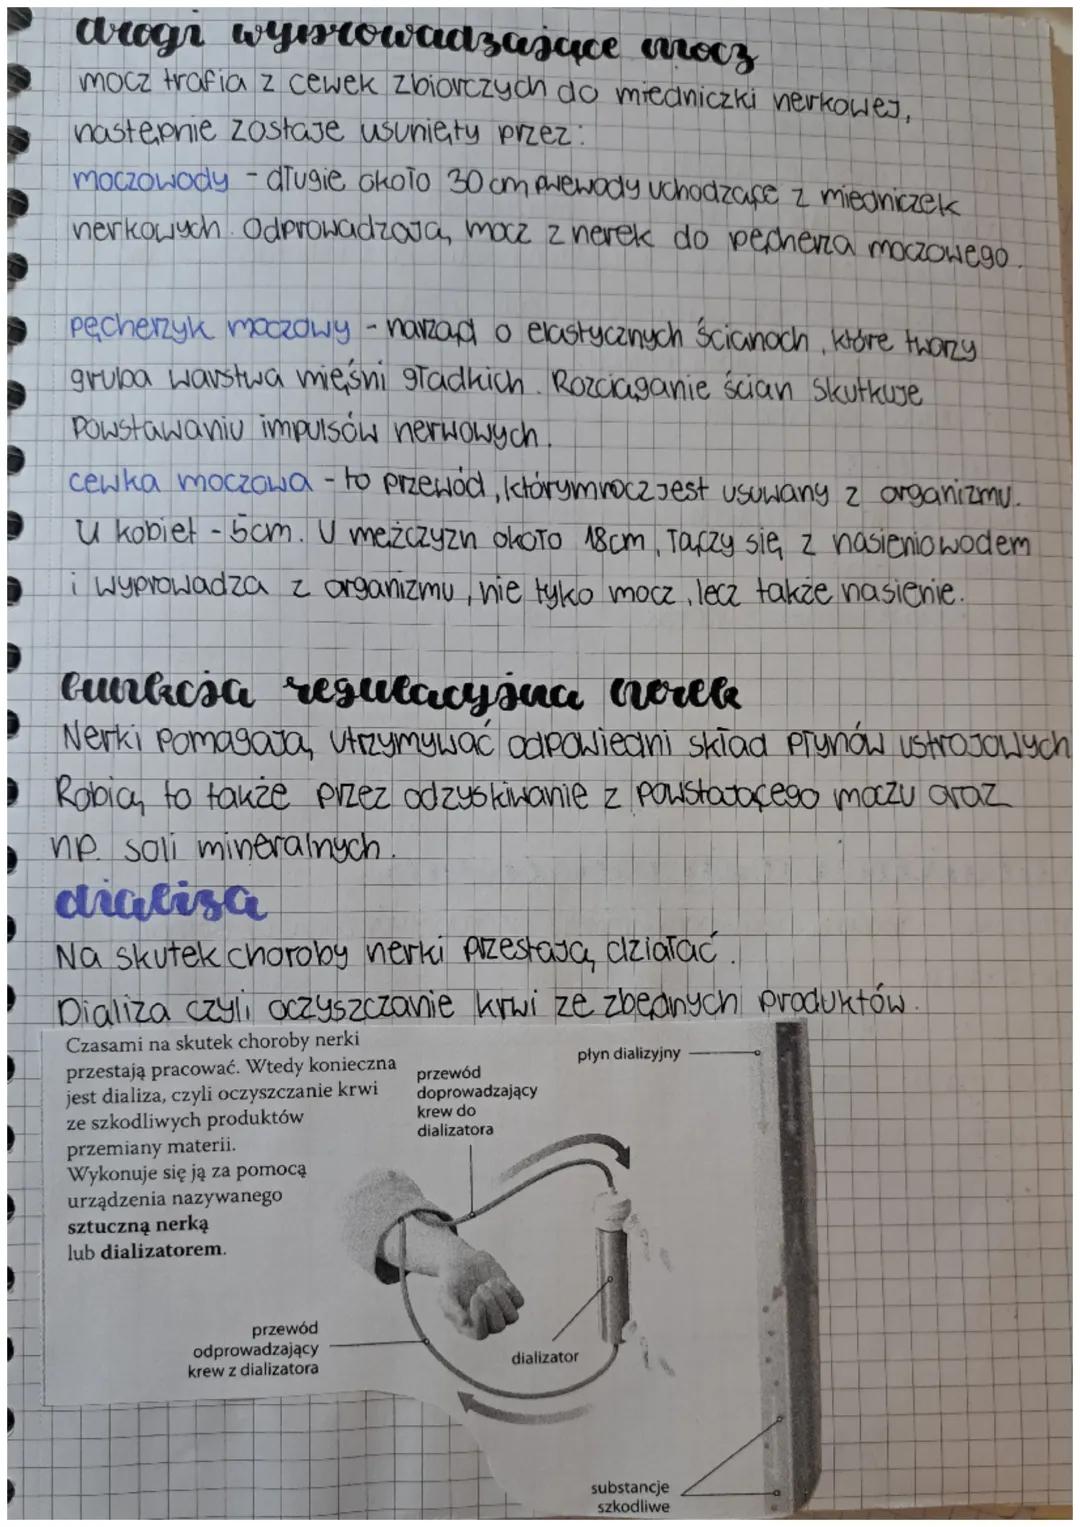 drogi wyprowadzające mocz
mocz trafia z cewek zbiorczych do miedniczki nerkowej,
następnie zostaje usunięty przez:
moczowody - długie około 30 cm przewody uchodzące z miedniczek
nerkowych. Odprowadzają mocz z nerek do pęcherza moczowego.
pęcherzyk moczowy - narząd o elastycznych ścianach, które tworzy
gruba warstwa mięśni gładkich. Rozciąganie ścian skutkuje
powstawaniu impulsów nerwowych.
cewka moczowa - to przewód, którym mocz jest usuwany z organizmu.
U kobiet - 5cm. U mężczyzn około 18cm, łączy się z nasieniowodem
i wyprowadza z organizmu, nie tyko mocz, lecz także nasienie.
funkcja regulacyjna nerek
Nerki pomagają utrzymywać odpowiedni skład płynów ustrojowych
Robią to także przez odzyskiwanie z powstającego moczu oraz
np. soli mineralnych.
dializa
Na skutek choroby nerki przestają działać.
Dializa czyli oczyszczanie krwi ze zbędnych produktów.
Czasami na skutek choroby nerki
przestają pracować. Wtedy konieczna
jest dializa, czyli oczyszczanie krwi
ze szkodliwych produktów
przemiany materii.
Wykonuje się ją za pomocą
urządzenia nazywanego
sztuczną nerką
lub dializatorem.
przewód
doprowadzający
krew do
dializatora
płyn dializyjny
przewód
odprowadzający
krew z dializatora
dializator
substancje
szkodliwe